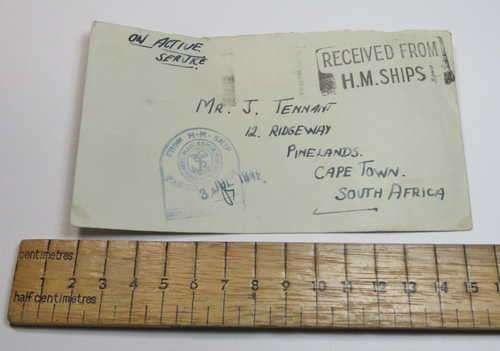 ON ACTIVE
SERVICE.
RECEIVED FROM
H.M. SHIPS
MR. J. TENNANT
12. RIDGEWAY
PINELANDS.
CAPE TOWN.
SOUTH AFRICA
FROM H.M. SHIP
centimetres
1 2 3 4 5 6 7 8 9 10 11 12 13 14 15
half centimetres